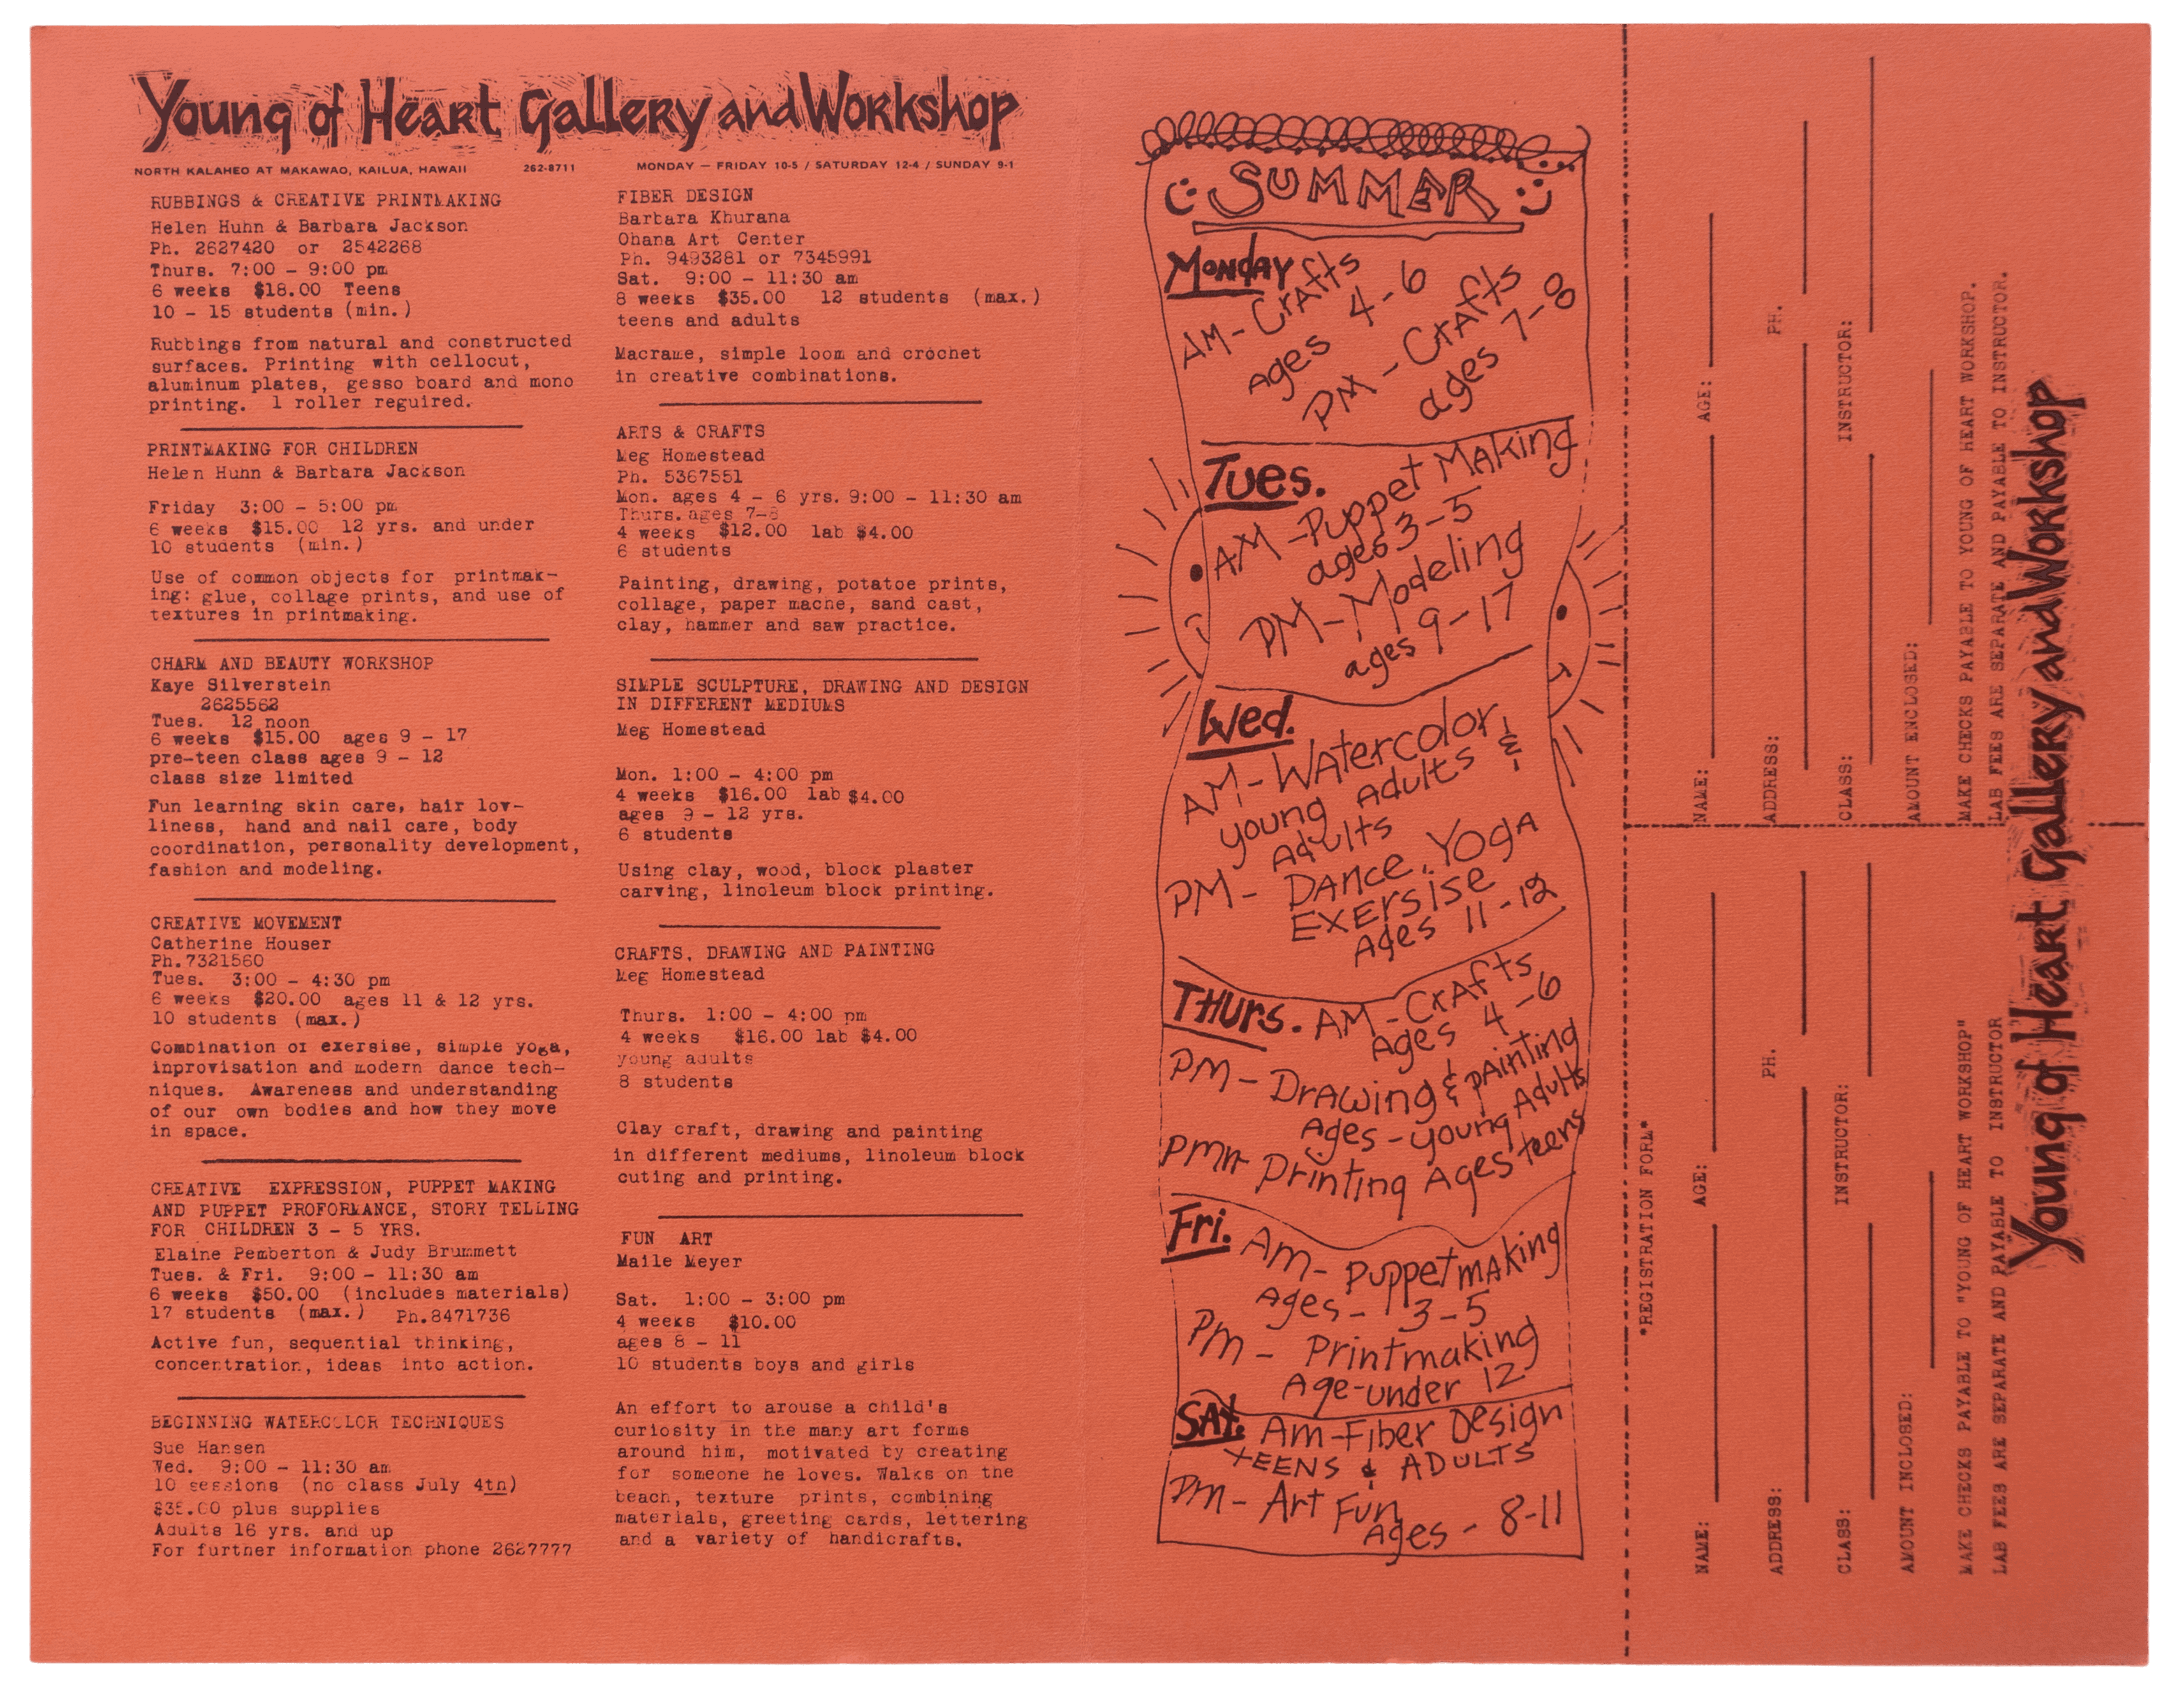 Young of Heart Gallery and Workshop
NORTH KALAHEO AT MAKAWAO, KAILUA, HAWAII 262-8711 MONDAY — FRIDAY 10-5 / SATURDAY 12-4 / SUNDAY 9-1
RUBBINGS & CREATIVE PRINTMAKING
Helen Huhn & Barbara Jackson
Ph. 2627420 or 2542268
Thurs. 7:00 - 9:00 pm
6 weeks $18.00 Teens
10 - 15 students (min.)
Rubbings from natural and constructed
surfaces. Printing with cellocut,
aluminum plates, gesso board and mono
printing. 1 roller reguired.
PRINTMAKING FOR CHILDREN
Helen Huhn & Barbara Jackson
Friday 3:00 - 5:00 pm
6 weeks $15.00 12 yrs. and under
10 students (min.)
Use of common objects for printmak-
ing: glue, collage prints, and use of
textures in printmaking.
CHARM AND BEAUTY WORKSHOP
Kaye Silverstein
2625562
Tues. 12 noon
6 weeks $15.00 ages 9 - 17
pre-teen class ages 9 - 12
class size limited
Fun learning skin care, hair lov-
liness, hand and nail care, body
coordination, personality development,
fashion and modeling.
CREATIVE MOVEMENT
Catherine Houser
Ph.7321560
Tues. 3:00 - 4:30 pm
6 weeks $20.00 ages 11 & 12 yrs.
10 students (max.)
Combination of exersise, simple yoga,
inprovisation and modern dance tech-
niques. Awareness and understanding
of our own bodies and how they move
in space.
CREATIVE EXPRESSION, PUPPET MAKING
AND PUPPET PROFORMANCE, STORY TELLING
FOR CHILDREN 3 - 5 YRS.
Elaine Pemberton & Judy Brummett
Tues. & Fri. 9:00 - 11:30 am
6 weeks $50.00 (includes materials)
17 students (max.) Ph.8471736
Active fun, sequential thinking,
concentration, ideas into action.
BEGINNING WATERCOLOR TECHNIQUES
Sue Hansen
Wed. 9:00 - 11:30 am
10 sessions (no class July 4th)
$35.00 plus supplies
Adults 16 yrs. and up
For further information phone 2627777
FIBER DESIGN
Barbara Khurana
Ohana Art Center
Ph. 9493281 or 7345991
Sat. 9:00 - 11:30 am
8 weeks $35.00 12 students (max.)
teens and adults
Macrame, simple loom and crochet
in creative combinations.
ARTS & CRAFTS
Meg Homestead
Ph. 5367551
Mon. ages 4 - 6 yrs. 9:00 - 11:30 am
Thurs. ages 7-8
4 weeks $12.00 lab $4.00
6 students
Painting, drawing, potatoe prints,
collage, paper mache, sand cast,
clay, hammer and saw practice.
SIMPLE SCULPTURE, DRAWING AND DESIGN
IN DIFFERENT MEDIUMS
Meg Homestead
Mon. 1:00 - 4:00 pm
4 weeks $16.00 lab $4.00
ages 9 - 12 yrs.
6 students
Using clay, wood, block plaster
carving, linoleum block printing.
CRAFTS, DRAWING AND PAINTING
Meg Homestead
Thurs. 1:00 - 4:00 pm
4 weeks $16.00 lab $4.00
young adults
8 students
Clay craft, drawing and painting
in different mediums, linoleum block
cuting and printing.
FUN ART
Maile Meyer
Sat. 1:00 - 3:00 pm
4 weeks $10.00
ages 8 - 11
10 students boys and girls
An effort to arouse a child's
curiosity in the many art forms
around him, motivated by creating
for someone he loves. Walks on the
beach, texture prints, combining
materials, greeting cards, lettering
and a variety of handicrafts.
SUMMER
Monday
AM - Crafts
ages 4-6
PM - Crafts
ages 7-8
Tues.
AM - Puppet Making
ages 3-5
PM - Modeling
ages 9-17
Wed.
AM - Watercolor
young adults &
Adults
PM - Dance, Yoga
Exersise
Ages 11-12
THurs. AM - Crafts
Ages 4-6
PM - Drawing & painting
Ages - young Adults
PM - Printing Ages teens
Fri. Am - Puppetmaking
Ages - 3-5
Pm - Printmaking
Age-under 12
SAt. Am-Fiber Design
tEENS & ADULTS
Pm - Art Fun
Ages - 8-11
NAME: AGE:
ADDRESS: PH.
CLASS: INSTRUCTOR:
AMOUNT ENCLOSED:
MAKE CHECKS PAYABLE TO YOUNG OF HEART WORKSHOP.
LAB FEES ARE SEPARATE AND PAYABLE TO INSTRUCTOR.
*REGISTRATION FORM*
NAME: AGE:
ADDRESS: PH.
CLASS: INSTRUCTOR:
AMOUNT INCLOSED:
MAKE CHECKS PAYABLE TO "YOUNG OF HEART WORKSHOP"
LAB FEES ARE SEPARATE AND PAYABLE TO INSTRUCTOR
Young of Heart Gallery and Workshop